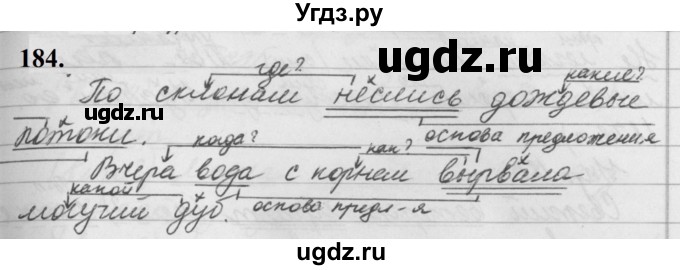 Угдз.ру
ugdz.ru
184.
где? какие?
По склонам неслись дождевые
ugdz.ru
потоки. когда? как? основа предложения
Вчера вода с корнем вырвала
какой
могучий дуб. основа предл-я
ugdz.ru
ugdz.ru